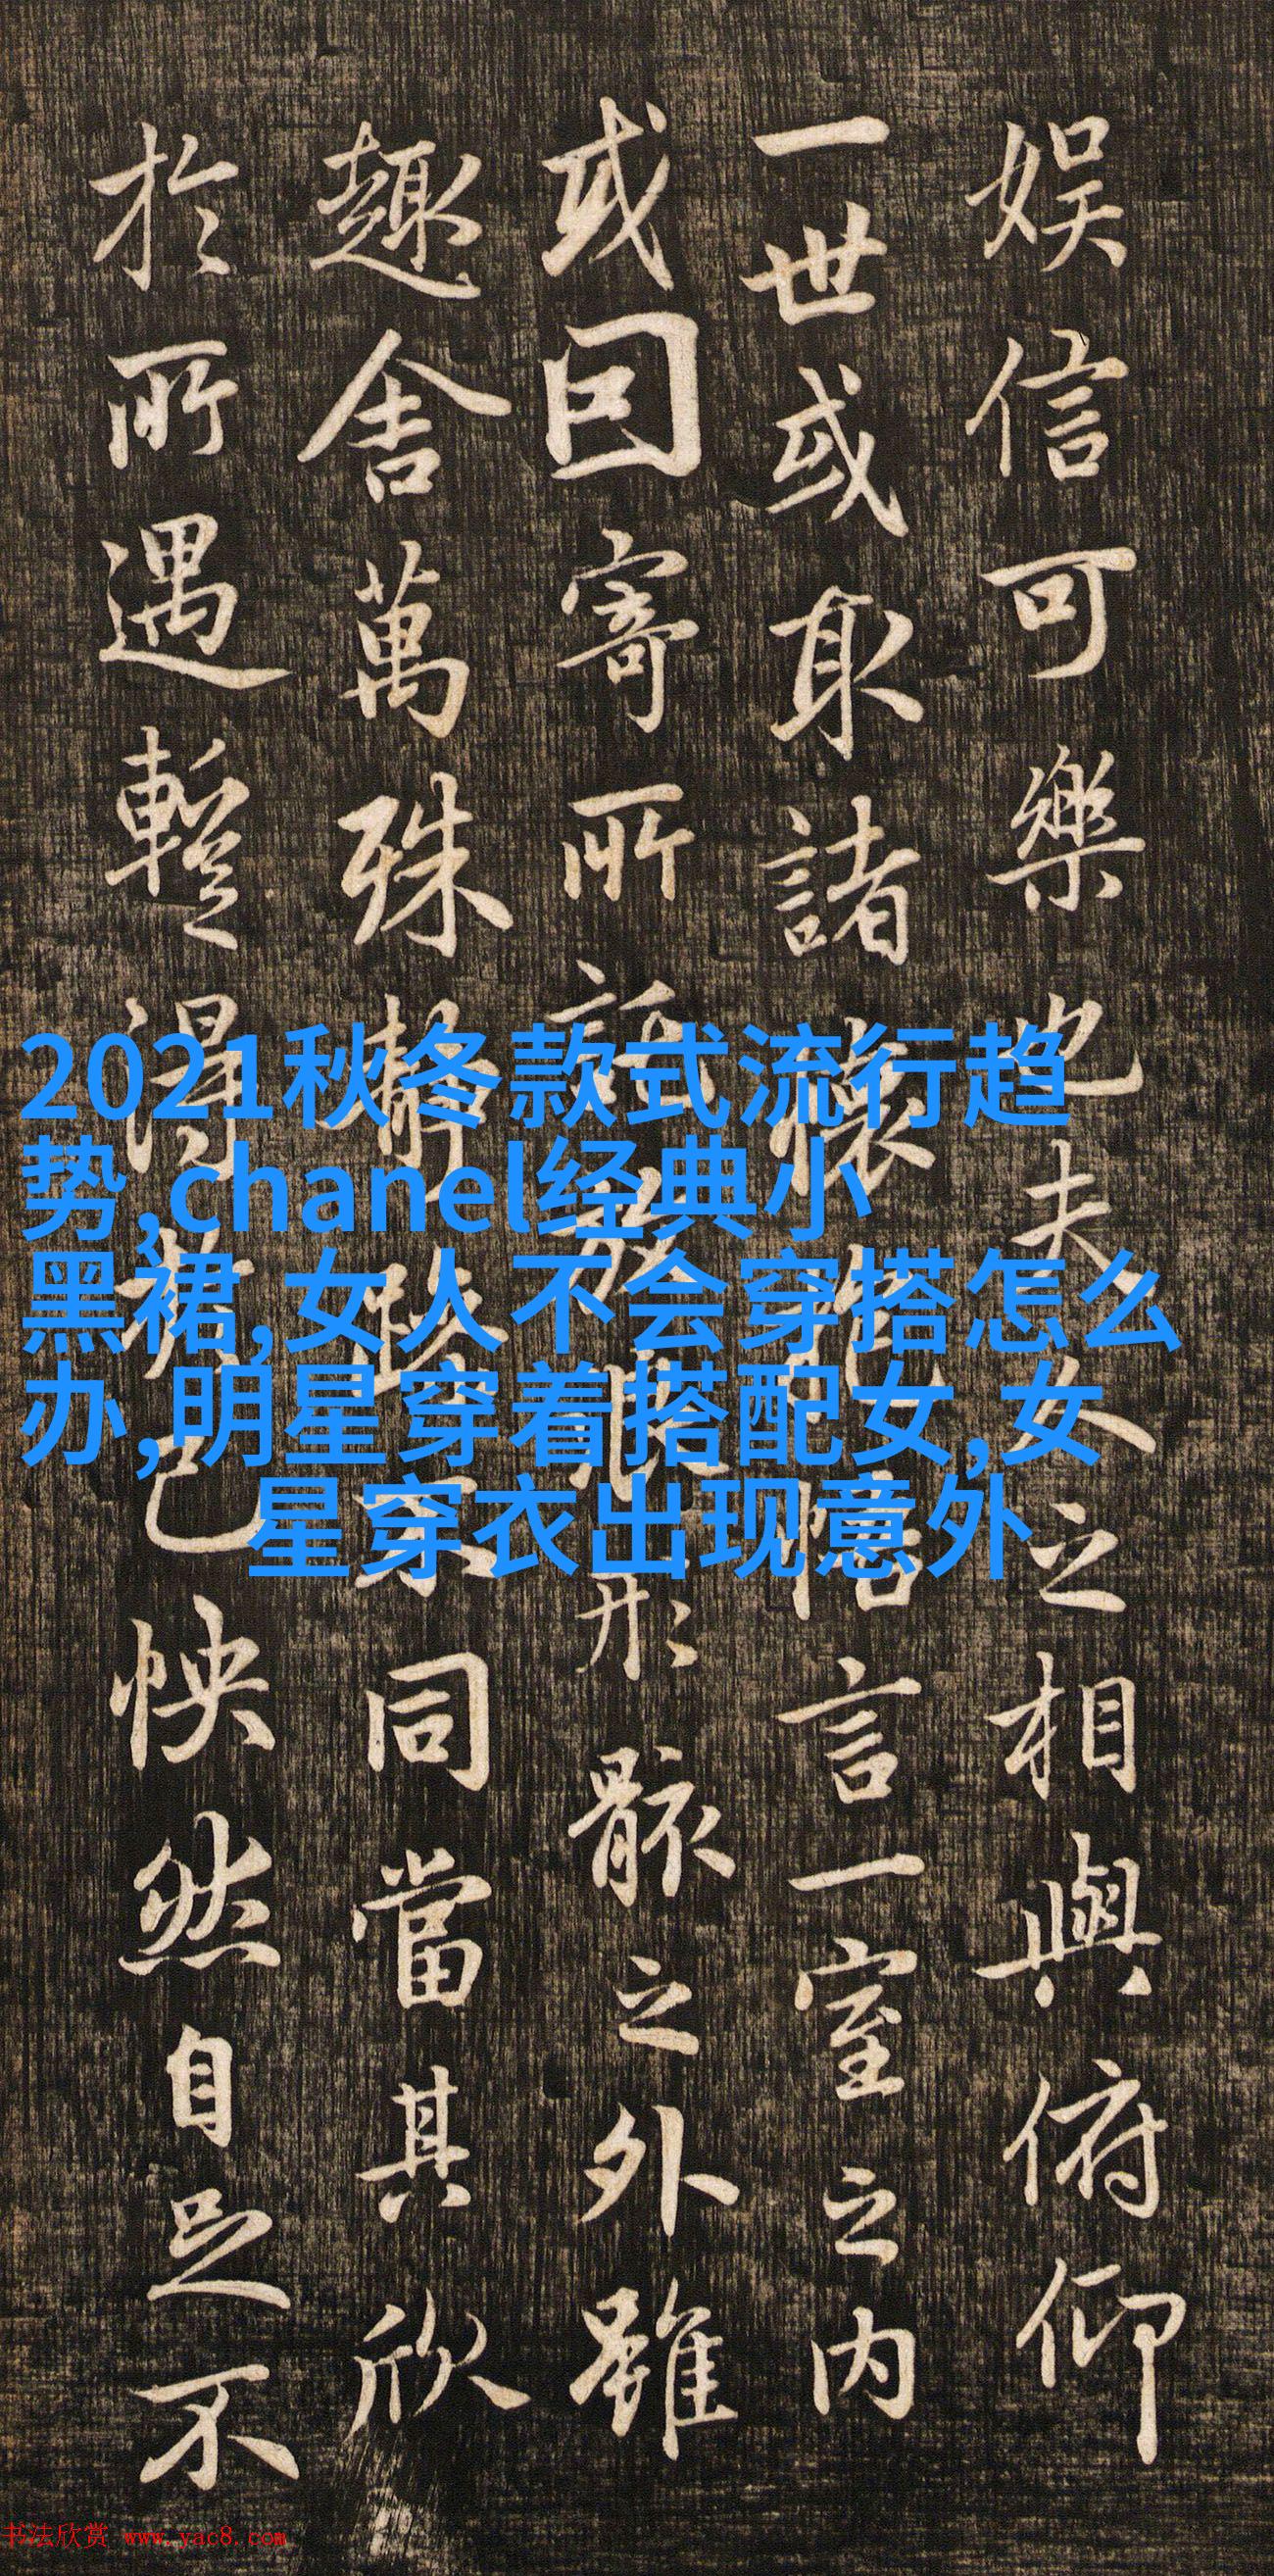 娱信可樂也夫人之相與俯仰
一世或取諸懷抱悟言一室之内
或因寄所託放浪形骸之外雖
趣舍萬殊靜躁不同當其欣
於所遇蹔得於己怏然自足不
2021秋冬款式流行趋
势,chanel经典小
黑裙,女人不会穿搭怎么
办,明星穿着搭配女,女
星穿衣出现意外
书法欣赏 www.yac8.com